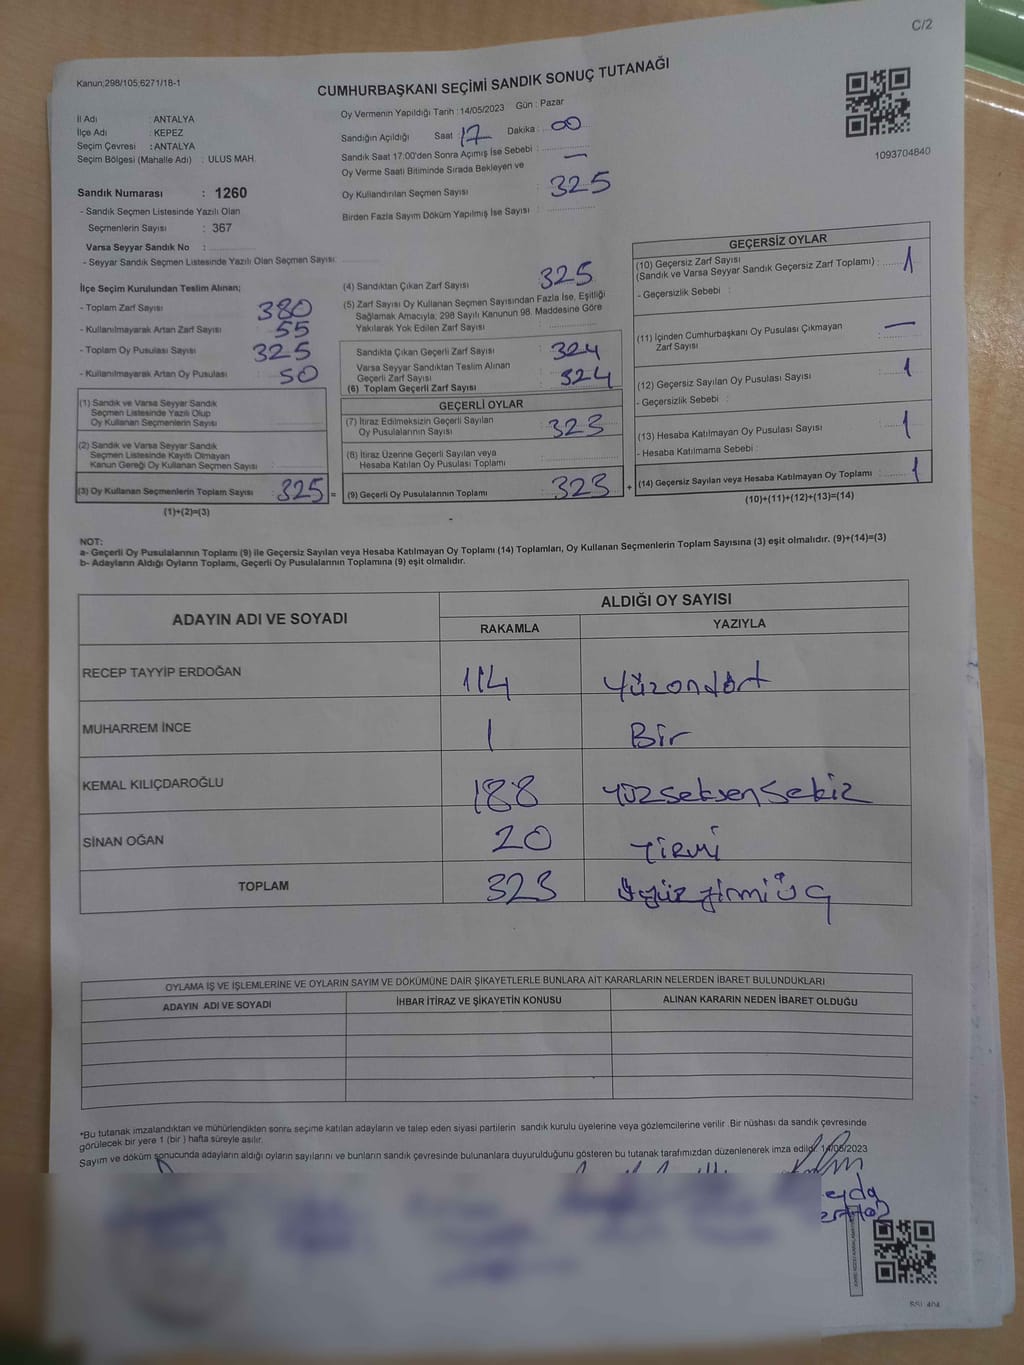 C/2
Kanun:298/105;6271/18-1
CUMHURBAŞKANI SEÇİMİ SANDIK SONUÇ TUTANAĞI
Oy Vermenin Yapıldığı Tarih : 14/05/2023 Gün : Pazar
İl Adı : ANTALYA
İlçe Adı : KEPEZ
Seçim Çevresi : ANTALYA
Seçim Bölgesi (Mahalle Adı) : ULUS MAH.
Sandığın Açıldığı Saat : 17 Dakika : 00
Sandık Saat 17:00'den Sonra Açımış İse Sebebi :
Oy Verme Saati Bitiminde Sırada Bekleyen ve —
Oy Kullandırılan Seçmen Sayısı : 325
Birden Fazla Sayım Döküm Yapılmış İse Sayısı :
1093704840
Sandık Numarası : 1260
- Sandık Seçmen Listesinde Yazılı Olan
Seçmenlerin Sayısı : 367
Varsa Seyyar Sandık No :
- Seyyar Sandık Seçmen Listesinde Yazılı Olan Seçmen Sayısı:
İlçe Seçim Kurulundan Teslim Alınan;
- Toplam Zarf Sayısı : 380
- Kullanılmayarak Artan Zarf Sayısı : 55
- Toplam Oy Pusulası Sayısı : 325
- Kullanılmayarak Artan Oy Pusulası : 50
(1) Sandık ve Varsa Seyyar Sandık
Seçmen Listesinde Yazılı Olup
Oy Kullanan Seçmenlerin Sayısı :
(2) Sandık ve Varsa Seyyar Sandık
Seçmen Listesinde Kayıtlı Olmayan
Kanun Gereği Oy Kullanan Seçmen Sayısı :
(3) Oy Kullanan Seçmenlerin Toplam Sayısı : 325 =
(1)+(2)=(3)
(4) Sandıktan Çıkan Zarf Sayısı : 325
(5) Zarf Sayısı Oy Kullanan Seçmen Sayısından Fazla İse, Eşitliği
Sağlamak Amacıyla, 298 Sayılı Kanunun 98. Maddesine Göre
Yakılarak Yok Edilen Zarf Sayısı :
Sandıkta Çıkan Geçerli Zarf Sayısı : 324
Varsa Seyyar Sandıktan Teslim Alınan
Geçerli Zarf Sayısı :
(6) Toplam Geçerli Zarf Sayısı : 324
GEÇERLİ OYLAR
(7) İtiraz Edilmeksizin Geçerli Sayılan
Oy Pusulalarının Sayısı : 323
(8) İtiraz Üzerine Geçerli Sayılan veya
Hesaba Katılan Oy Pusulası Toplamı :
(9) Geçerli Oy Pusulalarının Toplamı : 323 +
GEÇERSİZ OYLAR
(10) Geçersiz Zarf Sayısı
(Sandık ve Varsa Seyyar Sandık Geçersiz Zarf Toplamı) : 1
- Geçersizlik Sebebi :
(11) İçinden Cumhurbaşkanı Oy Pusulası Çıkmayan
Zarf Sayısı : —
(12) Geçersiz Sayılan Oy Pusulası Sayısı : 1
- Geçersizlik Sebebi :
(13) Hesaba Katılmayan Oy Pusulası Sayısı : 1
- Hesaba Katılmama Sebebi :
(14) Geçersiz Sayılan veya Hesaba Katılmayan Oy Toplamı : 1
(10)+(11)+(12)+(13)=(14)
NOT:
a- Geçerli Oy Pusulalarının Toplamı (9) ile Geçersiz Sayılan veya Hesaba Katılmayan Oy Toplamı (14) Toplamları, Oy Kullanan Seçmenlerin Toplam Sayısına (3) eşit olmalıdır. (9)+(14)=(3)
b- Adayların Aldığı Oyların Toplamı, Geçerli Oy Pusulalarının Toplamına (9) eşit olmalıdır.
ADAYIN ADI VE SOYADI ALDIĞI OY SAYISI
RAKAMLA YAZIYLA
RECEP TAYYİP ERDOĞAN 114 Yüzondört
MUHARREM İNCE 1 Bir
KEMAL KILIÇDAROĞLU 188 Yüzseksensekiz
SİNAN OĞAN 20 Yirmi
TOPLAM 323 üçyüzyirmiüç
OYLAMA İŞ VE İŞLEMLERİNE VE OYLARIN SAYIM VE DÖKÜMÜNE DAİR ŞİKAYETLERLE BUNLARA AİT KARARLARIN NELERDEN İBARET BULUNDUKLARI
ADAYIN ADI VE SOYADI İHBAR İTİRAZ VE ŞİKAYETİN KONUSU ALINAN KARARIN NEDEN İBARET OLDUĞU
*Bu tutanak imzalandıktan ve mühürlendikten sonra seçime katılan adayların ve talep eden siyasi partilerin sandık kurulu üyelerine veya gözlemcilerine verilir. Bir nüshası da sandık çevresinde
görülecek bir yere 1 (bir) hafta süreyle asılır.
Sayım ve döküm sonucunda adayların aldığı oyların sayılarını ve bunların sandık çevresinde bulunanlara duyurulduğunu gösteren bu tutanak tarafımızdan düzenlenerek imza edildi. 14/05/2023